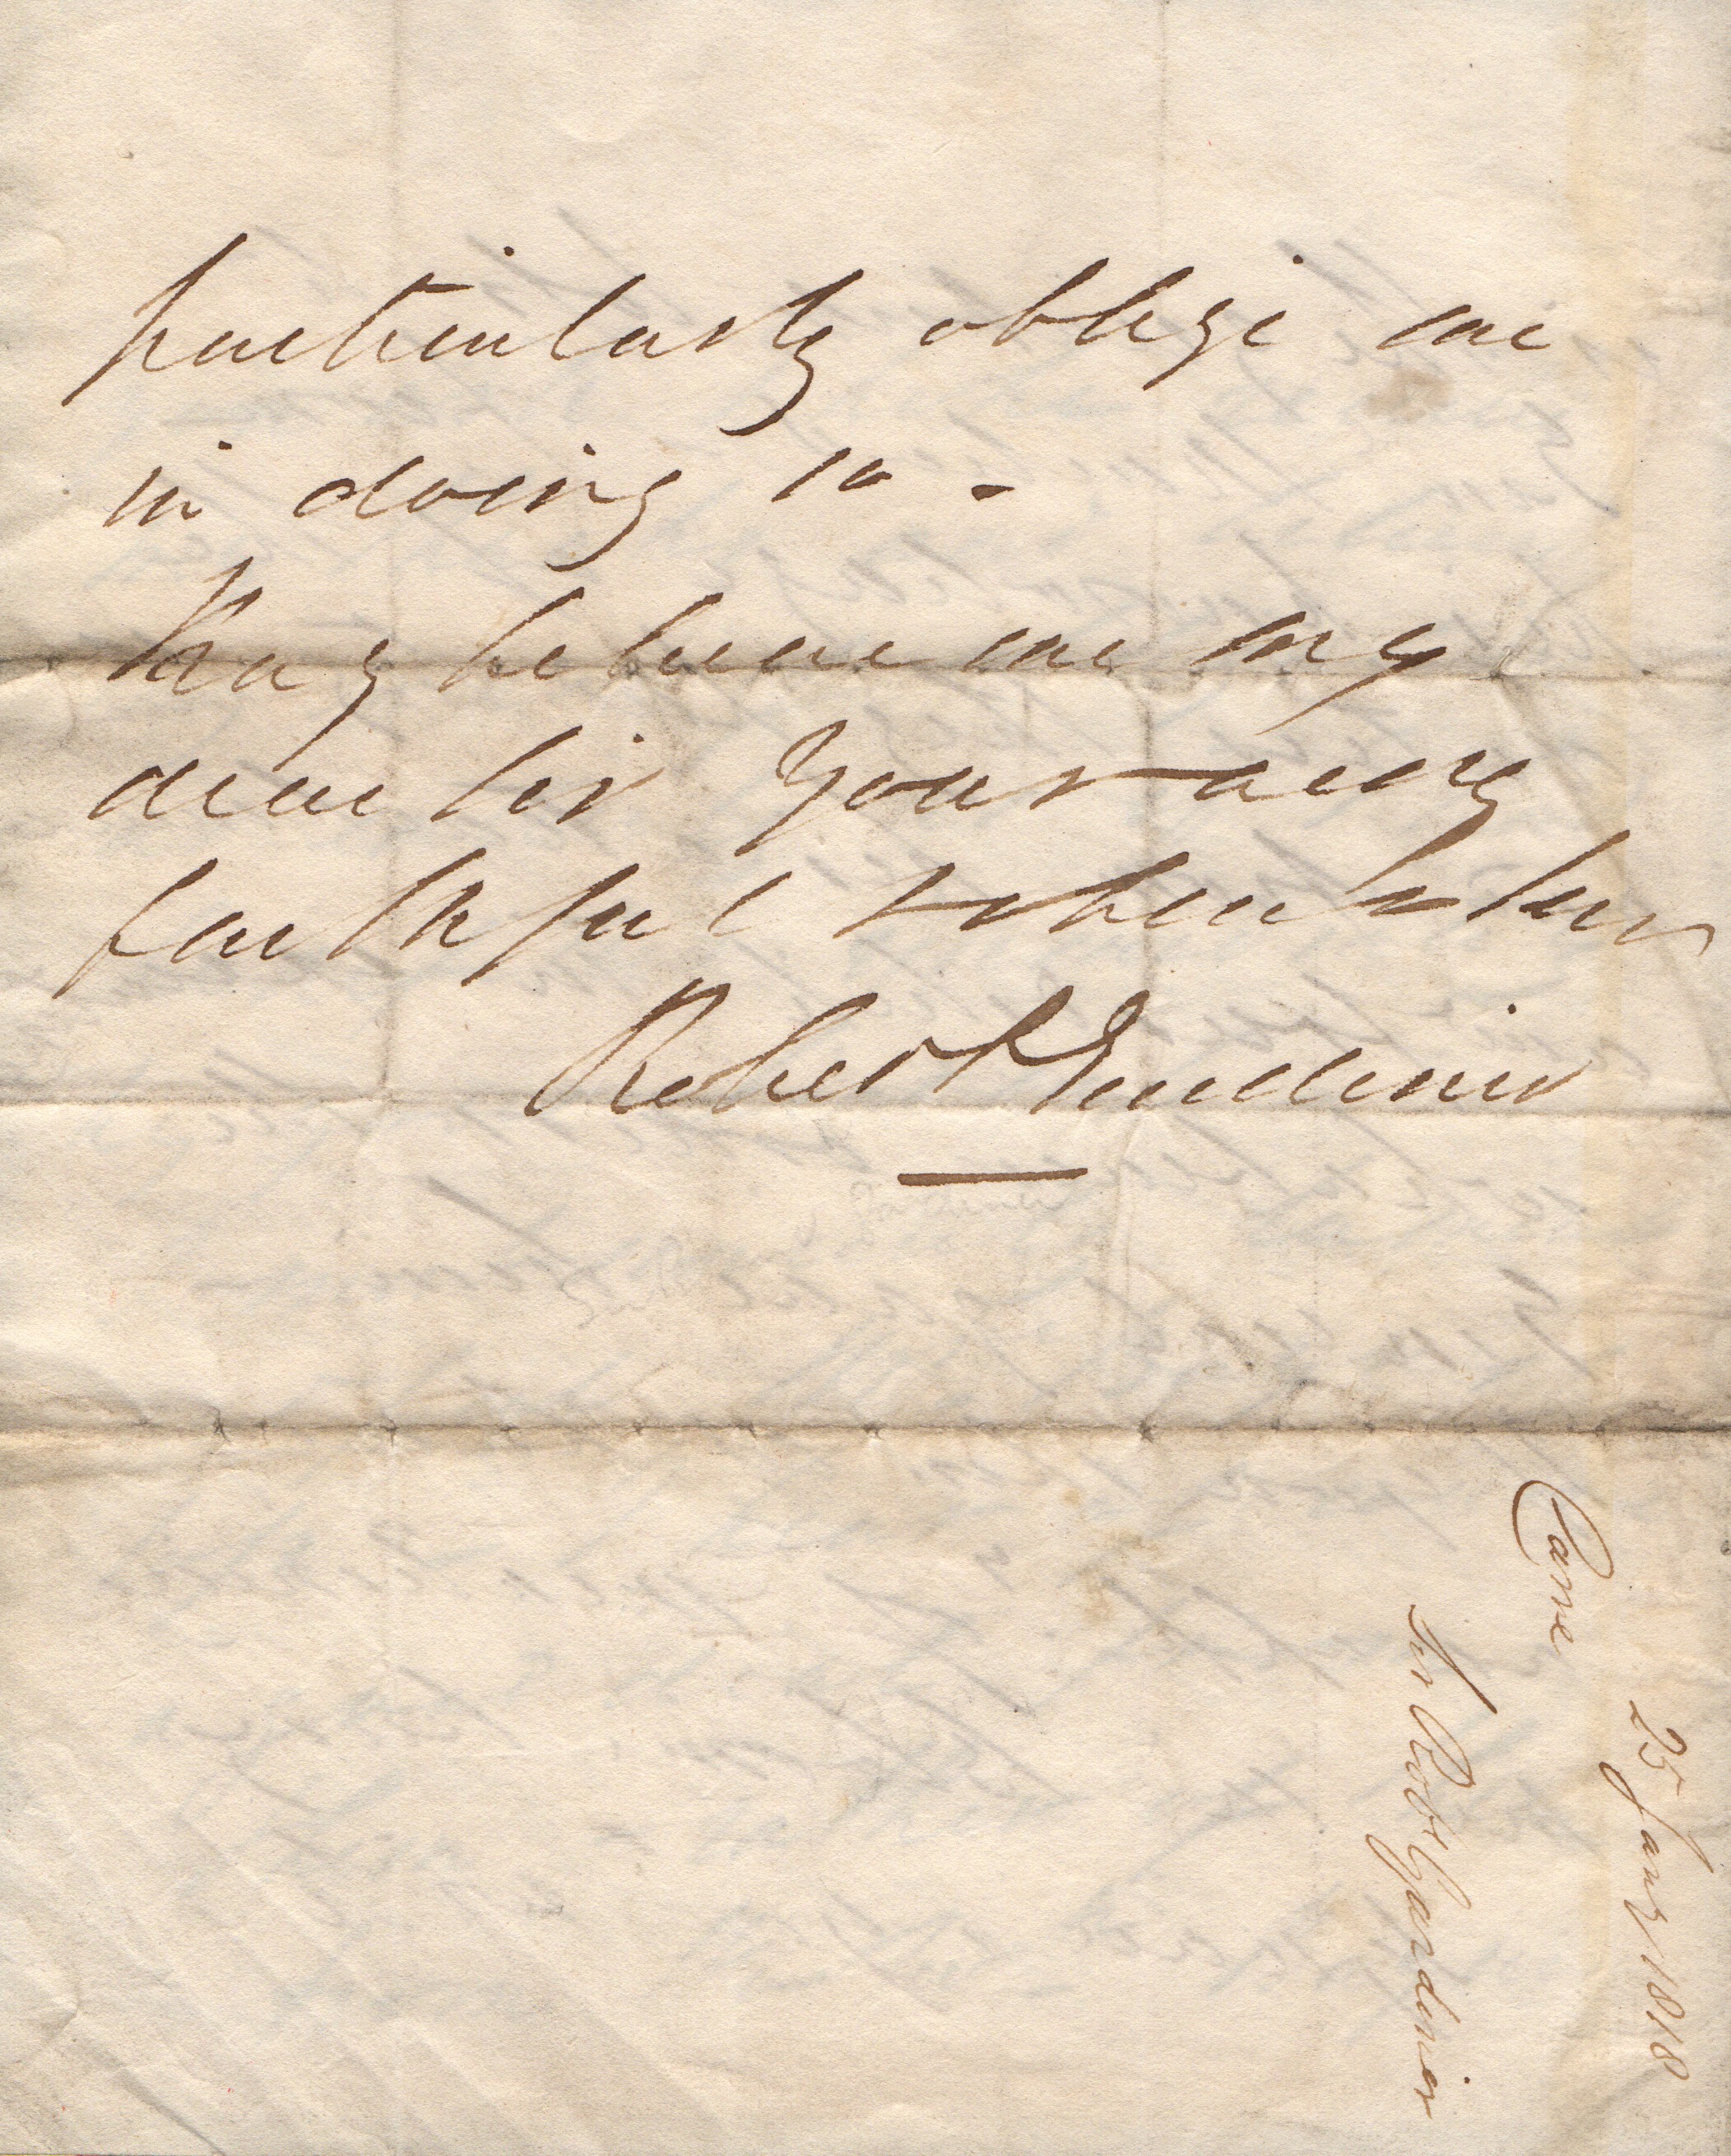 particularly oblige me
in doing so -
Pray believe me my
dear Sir Your very
faithful
Robert Gardiner
25 Jany 1818
Came
Sir Robt Gardiner